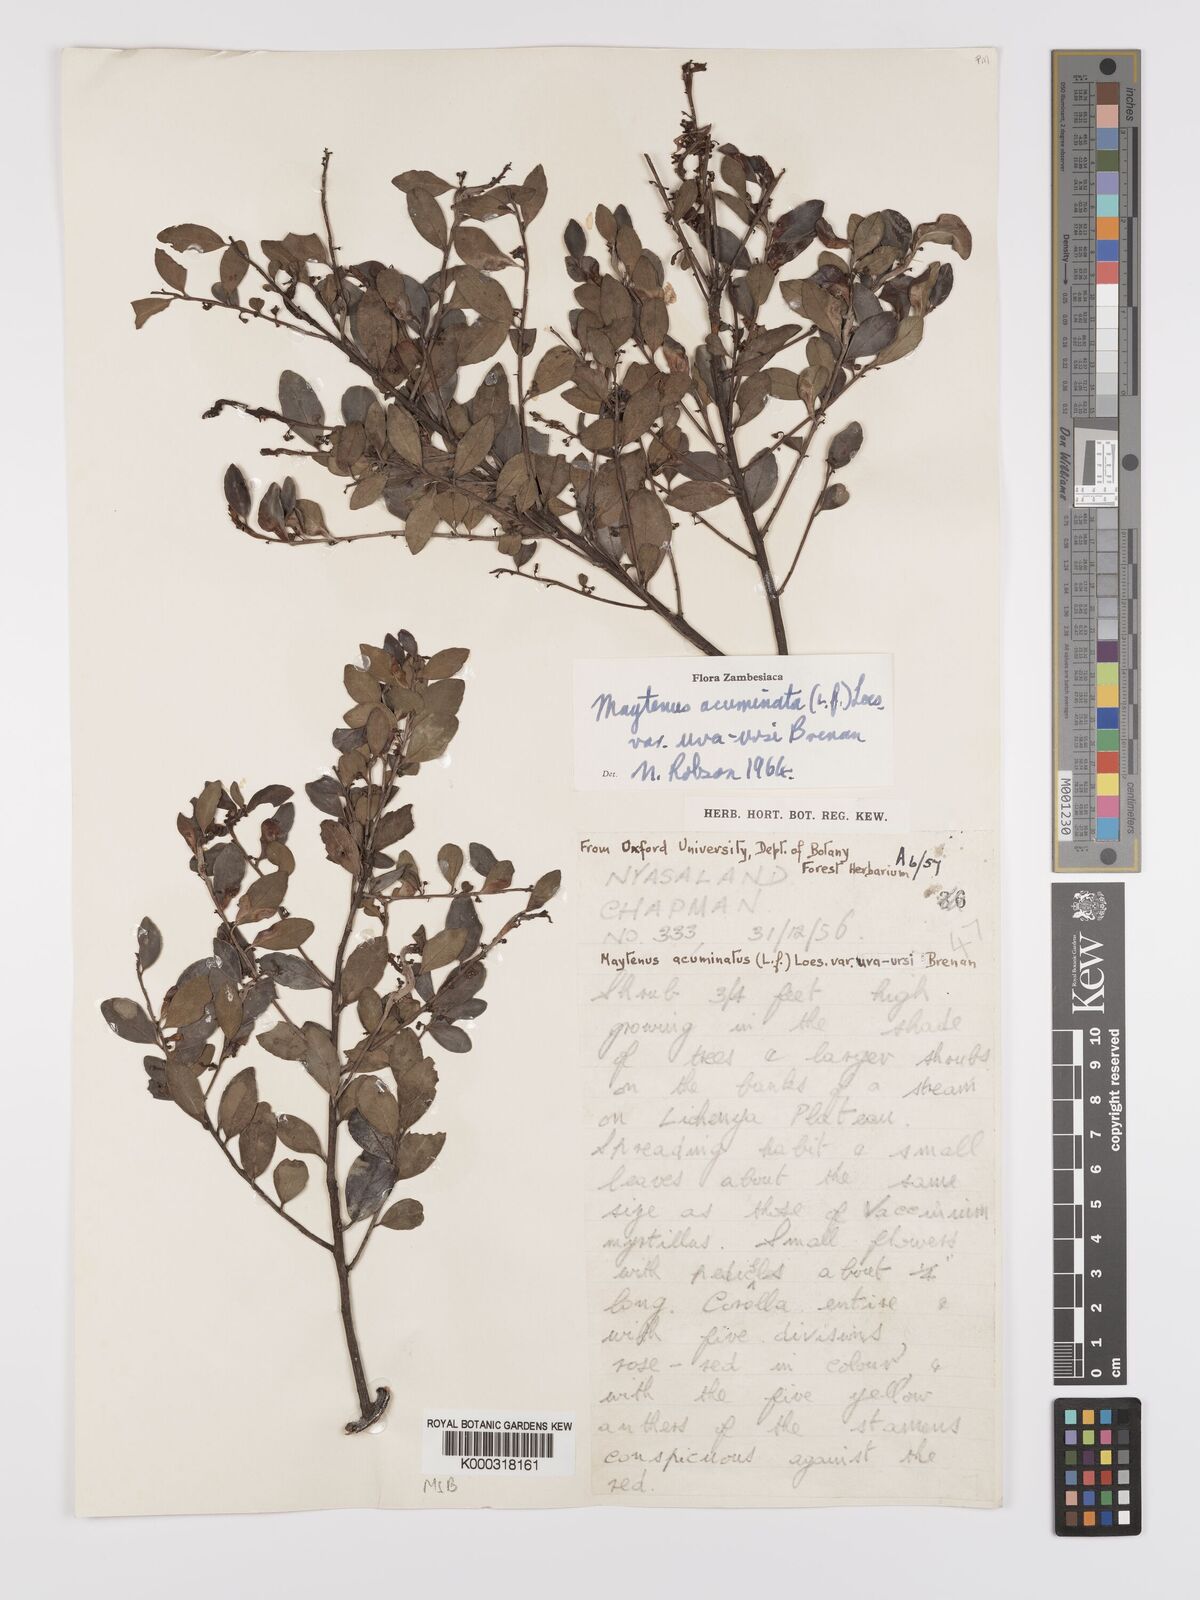 Flora Zambesiaca
Maytenus acuminata (L.f.) Loes.
var. uva-ursi Brenan
Det. N. Robson 1964.
HERB. HORT. BOT. REG. KEW.
From Oxford University, Dept. of Botany
Forest Herbarium A6/57
NYASALAND
36
CHAPMAN
NO. 333 31/12/56.
47
Maytenus acuminatus (L.f.) Loes. var. uva-ursi Brenan
Shrub 3/4 feet high
growing in the shade
of trees & larger shrubs
on the banks of a stream
on Lichenya Plateau.
Spreading habit & small
leaves about the same
size as those of Vaccinium
myrtillus. Small flowers
with pedicels about ¼"
long. Corolla entire &
with five divisions,
rose-red in colour, &
with the five yellow
anthers of the stamens
conspicuous against the
red.
ROYAL BOTANIC GARDENS KEW
K000318161
MSB
inches
centimeters
Density
Don Williams
M001230
Royal Botanic Gardens
Kew
copyright reserved
0 1 2 3 4 5 6 7 8 9 10
cm